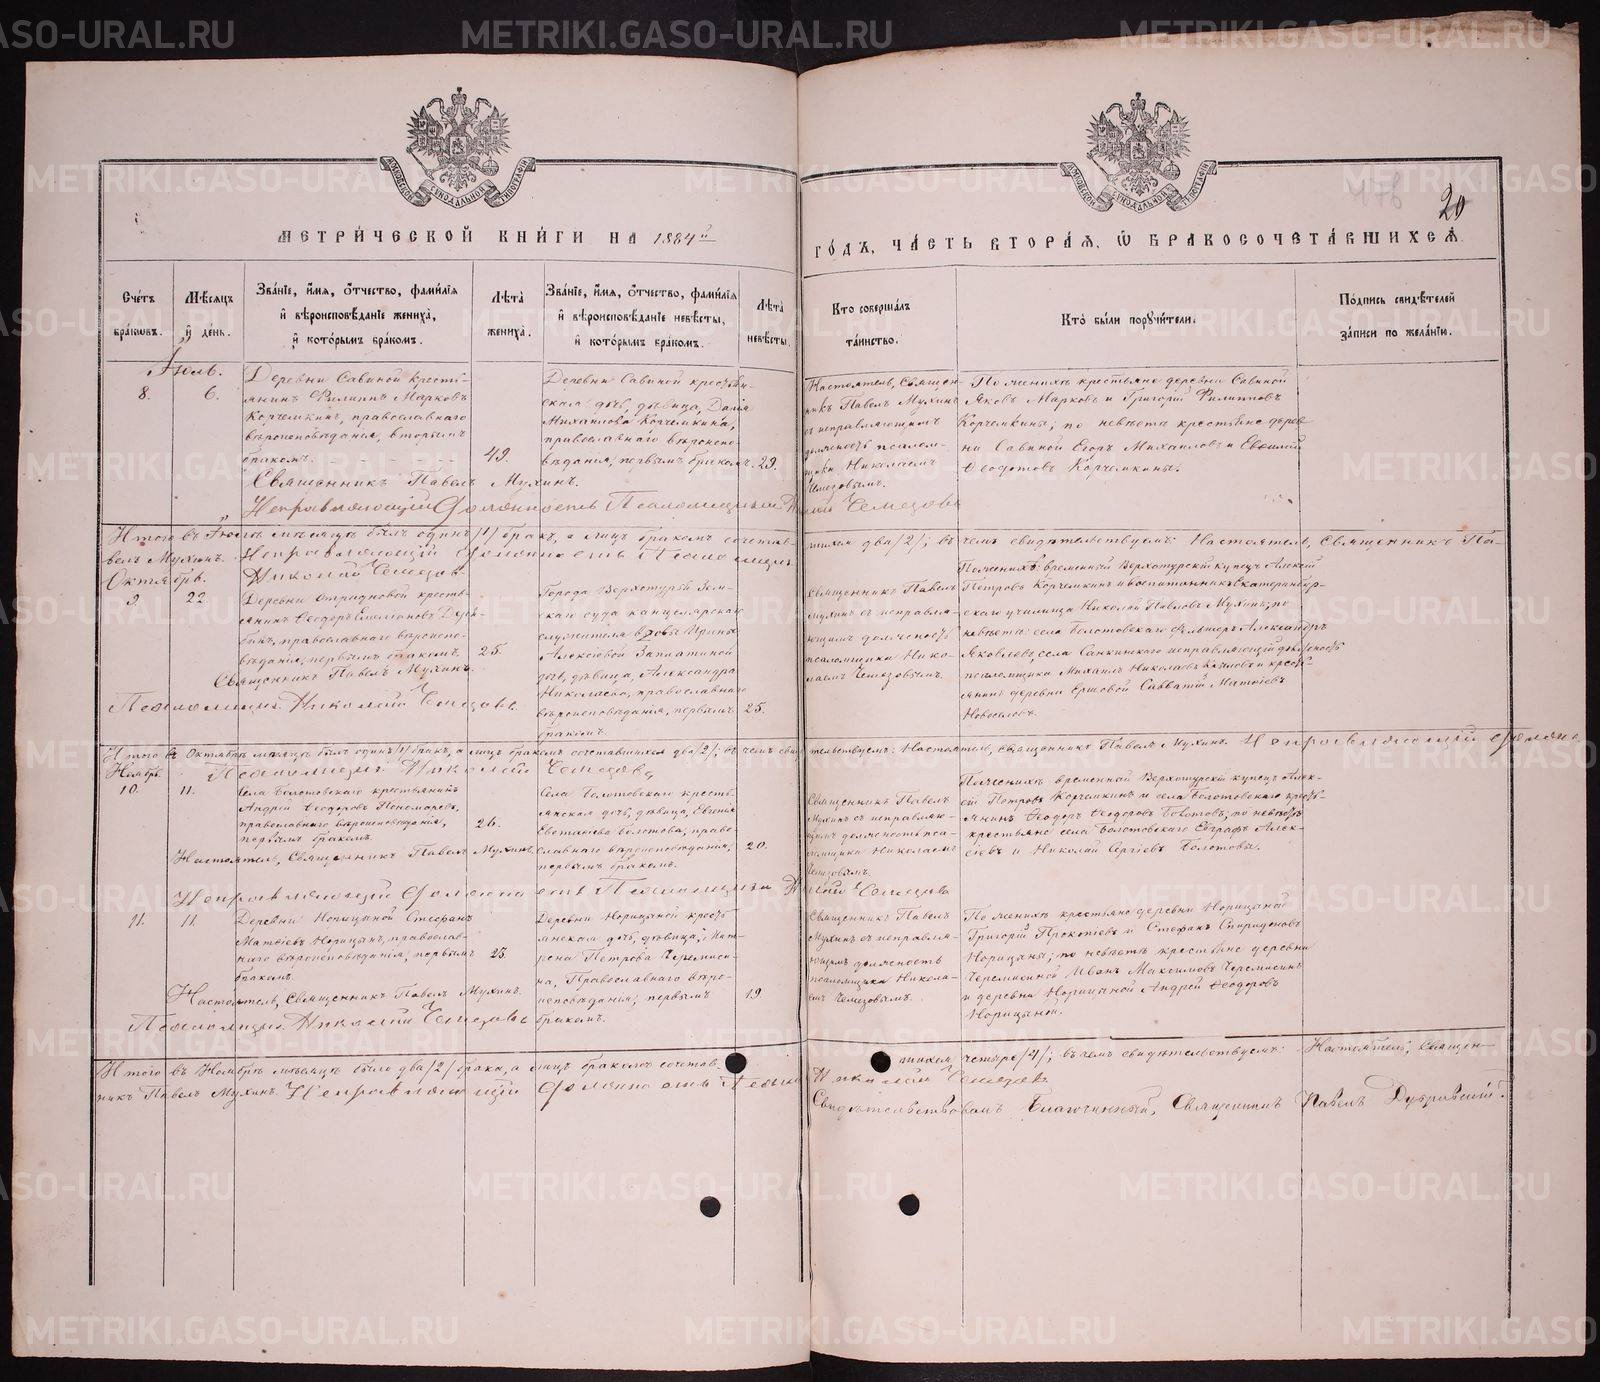 МЕТРИЧЕСКОЙ КНИГИ НА 1884й
ГОДЪ, ЧАСТЬ ВТОРАЯ, Ѡ БРАКОСОЧЕТАВШИХСЯ
20
Счетъ браковъ.
Мѣсяцъ и день.
Званіе, имя, отчество, фамилія и вѣроисповѣданіе жениха, и которымъ бракомъ.
Лѣта жениха.
Званіе, имя, отчество, фамилія и вѣроисповѣданіе невѣсты, и которымъ бракомъ.
Лѣта невѣсты.
Кто совершалъ таинство.
Кто были поручители.
Подпись свидѣтелей записи по желанію.
Іюль.
8.
6.
Деревни Савиной кресть-
янинъ Филиппъ Марковъ
Корчемкинъ, православнаго
вѣроисповѣданія, вторымъ
бракомъ.
49.
Деревни Савиной крестьян-
ская дочь, дѣвица, Дарія
Михаилова Корчемкина,
православнаго вѣроиспо-
вѣданія, первымъ бракомъ.
29.
Настоятель, Священ-
никъ Павелъ Мухинъ
съ исправляющимъ
должность псалом-
щика Николаемъ
Чемезовымъ.
По женихѣ крестьяне деревни Савиной
Яковъ Марковъ и Григорій Филипповъ
Корчемкины; по невѣстѣ крестьяне дерев-
ни Савиной Егоръ Михаиловъ и Евсигній
Ѳеодотовъ Корчемкины.
Священникъ Павелъ Мухинъ.
Исправляющій должность Псаломщика Николай Чемезовъ
Итого въ Іюлѣ мѣсяцѣ былъ одинъ /1/ бракъ, а лицъ бракомъ сочетав-
шихся два /2/; въ чемъ свидѣтельствуемъ: Настоятель, Священникъ Па-
велъ Мухинъ. Исправляющій должность Псаломщика
Николай Чемезовъ
Октябрь.
9.
22.
Ѳеодоръ
православнаго вѣроиспо-
вѣданія, первымъ бракомъ.
25.
Города Верхотурья Зем-
скаго суда канцелярскаго
служителя вдовы Ирины
Алексіевой Заплатиной
дочь, дѣвица, Александра
Николаева, православнаго
вѣроисповѣданія, первымъ
бракомъ.
25.
Священникъ Павелъ
Мухинъ съ исправля-
ющимъ должность
псаломщика Нико-
лаемъ Чемезовымъ.
По женихѣ: временный Верхотурскій купецъ Алексій
Петровъ Корчемкинъ и воспитанникъ Екатеринбур-
скаго училища Николай Павловъ Мухинъ; по
невѣстѣ: села Болотовскаго фельдшеръ Александръ
Яковлевъ, села исправляющій должность
псаломщика Михаилъ Николаевъ и кресть-
янинъ деревни Ершовой Савватій Матвіевъ
Новоселовъ.
Священникъ Павелъ Мухинъ.
Псаломщикъ Николай Чемезовъ.
Итого въ Октябрѣ мѣсяцѣ былъ одинъ /1/ бракъ, а лицъ бракомъ сочетавшихся два /2/; въ чемъ свидѣ-
тельствуемъ: Настоятель, Священникъ Павелъ Мухинъ. Исправляющій должн
Псаломщика Николай Чемезовъ
Ноябрь.
10.
11.
Села Болотовскаго крестьянинъ
Андрей Ѳеодоровъ Пономаревъ,
православнаго вѣроисповѣданія,
первымъ бракомъ.
26.
Села Болотовскаго кресть-
янская дочь, дѣвица, Евгенія
Болотова, право-
славнаго вѣроисповѣданія,
первымъ бракомъ.
20.
Священникъ Павелъ
Мухинъ съ исправляю-
щимъ должность пса-
ломщика Николаемъ
Чемезовымъ.
По женихѣ временной Верхотурскій купецъ Алек-
сій Петровъ Корчемкинъ и села Болотовскаго кресть-
янинъ Ѳеодоръ Ѳеодоровъ Болотовъ; по невѣстѣ
крестьяне села Болотовскаго Евграфъ Алек-
сіевъ и Николай Сергіевъ Болотовы.
Настоятель, Священникъ Павелъ Мухинъ.
Исправляющій должность Псаломщика Николай Чемезовъ
11.
11.
Деревни Норицыной Стефанъ
Матвіевъ Норицынъ, православ-
наго вѣроисповѣданія, первымъ
бракомъ.
25.
Деревни Норицыной кресть-
янская дочь, дѣвица, Мат-
рона Петрова Черемиси-
на, Православнаго вѣро-
исповѣданія, первымъ
бракомъ.
19.
Священникъ Павелъ
Мухинъ съ исправля-
ющимъ должность
псаломщика Никола-
емъ Чемезовымъ.
По женихѣ крестьяне деревни Норицыной
Григорій Прокопіевъ и Стефанъ Спиридоновъ
Норицыны; по невѣстѣ крестьяне деревни
Черемисиной Иванъ Максимовъ Черемисинъ
и деревни Норицыной Андрей Ѳеодоровъ
Норицыной.
Настоятель, Священникъ Павелъ Мухинъ.
Псаломщикъ Николай Чемезовъ
Итого въ Ноябрѣ мѣсяцѣ было два /2/ брака, а лицъ бракомъ сочетав-
шихся четыре /4/; въ чемъ свидѣтельствуемъ: Настоятель, Священ-
никъ Павелъ Мухинъ. Исправляющій должность Псалом
Николай Чемезовъ
Свидѣтельствовалъ Благочинный, Священникъ Павелъ